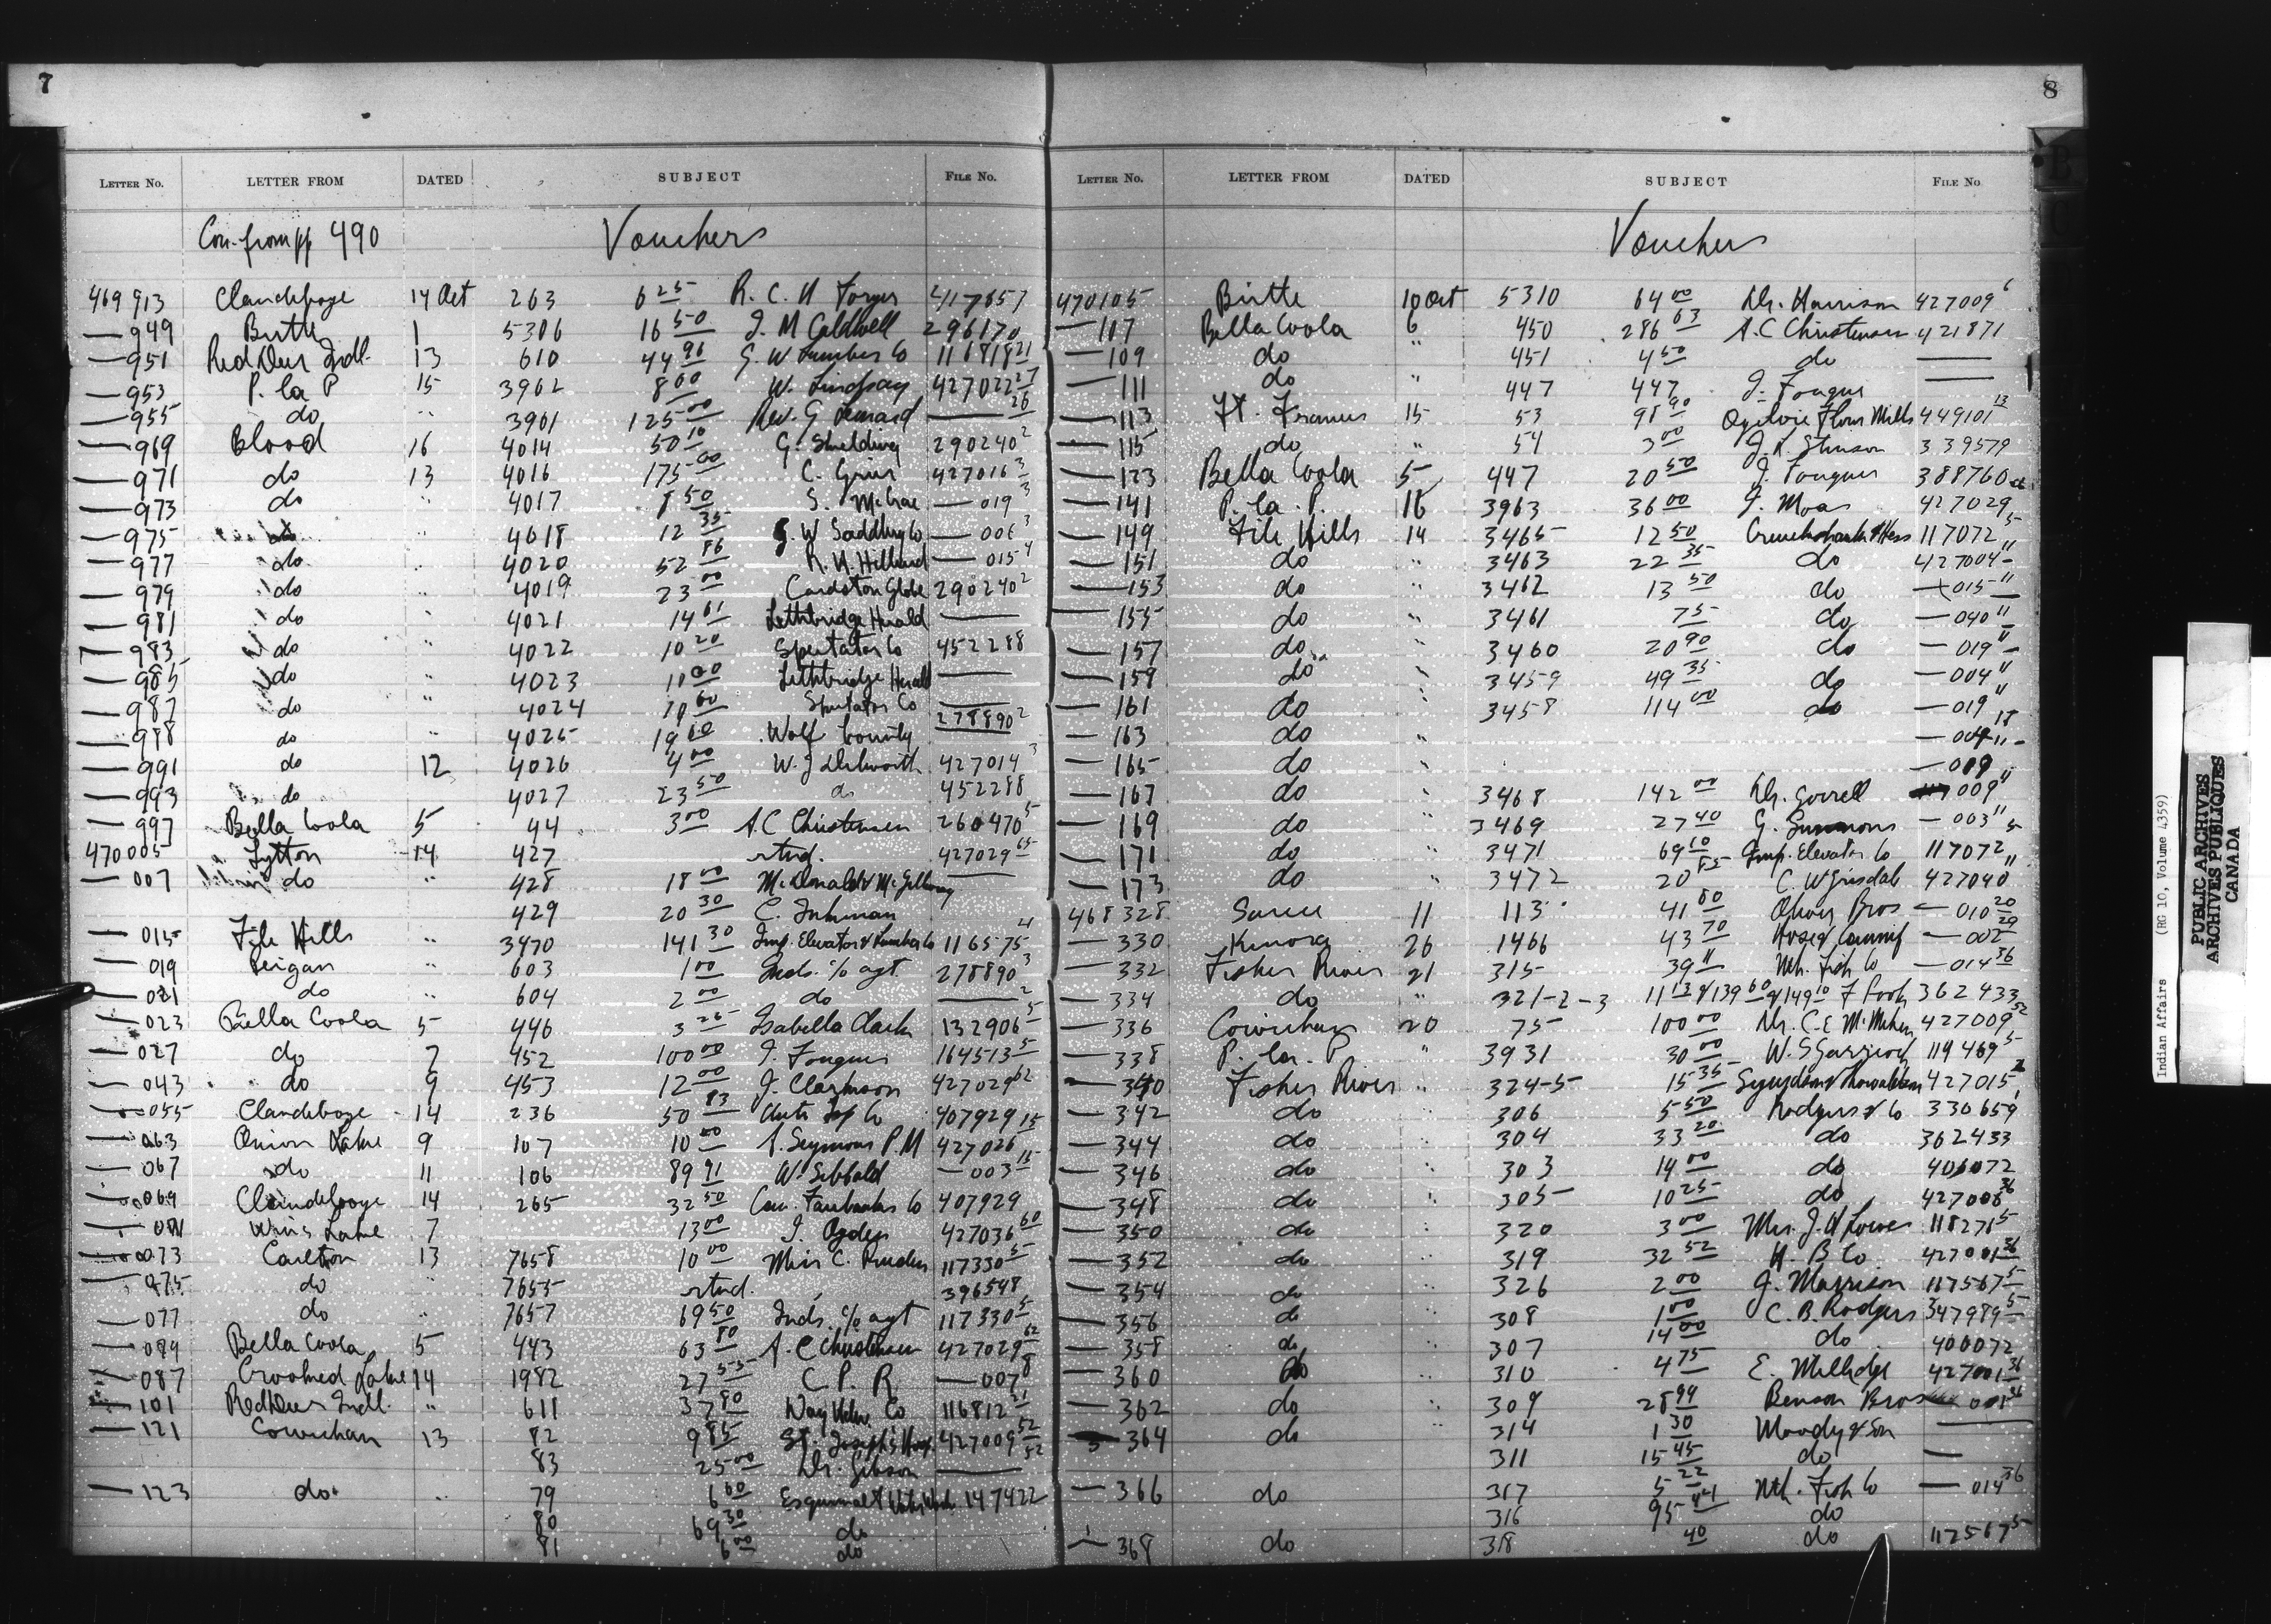 7
LETTER NO. LETTER FROM DATED SUBJECT FILE NO.
Con. from pp 490 Vouchers
469913 Clandeboye 14 Oct 263 6 25 R. C. N 417657
— 949 Birtle 1 5306 16 50 J. M Caldwell 296170
— 951 Red Deer Indl. 13 610 44 96 G. W Lumber Co 116818 21
— 953 P. la P 15 3962 8 00 W. Lindsay 427022 27
— 955 do " 3961 125 00 Rev. G Leonard — 26
— 969 Blood 16 4014 50 10 G. 290240 2
— 971 do 13 4016 175 00 C. Grier 427016 3
— 973 do " 4017 8 50 S. McCrae — 019 3
— 975 do " 4018 12 35 G. W Saddlery Co — 006 3
— 977 do " 4020 52 86 R. N. Hilliard — 015 4
— 979 do " 4019 23 00 Cardston Globe 290240 2
— 981 do " 4021 14 61 Lethbridge Herald —
— 983 do " 4022 10 20 Spectator Co 452288
— 985 do " 4023 11 00 Lethbridge Herald —
— 987 do " 4024 10 60 Spectator Co —
— 988 do " 4025 19 60 Wolf bounty 278890 2
— 991 do 12 4026 4 00 W. J Dilworth 427014 3
— 993 do 4027 23 50 do 452288
— 997 Bella Coola 5 44 3 00 A. C Christensen 260470 5
470005 Lytton 14 427 rtnd. 427029 65
— 007 do " 428 18 00 McDonald & McGillivray —
429 20 30 C. Inkman
— 015 File Hills " 3470 141 30 Imp. Elevator & Lumber Co 116575 4
— 019 Peigan " 603 1 00 Inds. c/o agt. 278890 3
— 021 do " 604 2 00 do — 2
— 023 Bella Coola 5 446 3 25 Isabella Clark 132906 5
— 027 do 7 452 100 00 J. Fougner 164513 5
— 043 do 9 453 12 00 J. Clayton 427029 62
— 055 Clandeboye 14 236 50 83 Auto Co 407929 15
— 063 Onion Lake 9 107 10 00 A. Seymour P. M 427026
— 067 do 11 106 89 91 W. Sibbald — 003 15
— 069 Clandeboye 14 265 32 50 Can. Fairbanks Co 407929
— 071 Wms Lake 7 13 00 J. Ogden 427036 60
— 073 Carlton 13 7658 10 00 Miss C. Pruden 117330 5
— 075 do " 7655 rtnd. 396548
— 077 do " 7657 19 50 Inds. c/o agt 117330 5
— 084 Bella Coola 5 443 63 80 A. C Christensen 427029 62
— 087 Crooked Lake 14 1982 27 55 C. P. R — 007 8
— 101 Red Deer Indl. " 611 37 80 Way Co 116812 21
— 121 Cowichan 13 82 9 85 St. Joseph's Hosp. 427009 52
83 25 00 Dr. Gibson — 52
— 123 do " 79 6 60 Esquimalt Water Works 147422
80 69 30 do
81 6 00 do
8
LETTER NO. LETTER FROM DATED SUBJECT FILE NO
Vouchers
470105 Birtle 10 Oct 5310 64 00 Dr. Harrison 427009 6
— 107 Bella Coola 6 450 286 63 A. C Christensen 421871
— 109 do " 451 4 50 do —
— 111 do " 447 447 J. Fougner —
— 113 Ft. Frances 15 53 98 90 Ogilvie Flour Mills 449101 13
— 115 do " 54 3 00 J. R. Stinson 339579
— 123 Bella Coola 5 447 20 50 J. Fougner 388760
— 141 P. la. P. 16 3963 36 00 J. Moar 427029
— 149 File Hills 14 3465 12 50 Cruickshank & Hess 117072 5
— 151 do " 3463 22 35 do 427004 11
— 153 do " 3462 13 50 do — 015 11
— 155 do " 3461 75 do — 040 11
— 157 do " 3460 20 90 do — 019 11
— 159 do " 3459 49 35 do — 004 11
— 161 do " 3458 114 00 do — 019 11
— 163 do " — 004 11
— 165 do " — 009
— 167 do " 3468 142 00 Dr. Gorrell 009 11
— 169 do " 3469 27 40 G. Simmons — 003 11
— 171 do " 3471 69 60 Imp. Elevator Co 117072 5
— 173 do " 3472 20 85 C. W Grisdale 427040 11
468328 Sarcee 11 113 41 00 Oliver Bros — 010 20
— 330 Kenora 26 1466 43 70 — 002 29
— 332 Fisher River 21 315 39 11 Nth. Fish Co — 014 36
— 334 do " 321-2-3 11 13 & 139 60 & 149 10 F 362433
— 336 Cowichan 20 75 100 00 Dr. C. E McMicken 427009 52
— 338 P. la. P " 3931 30 00 W. S Garrioch 119469 5
— 340 Fisher River " 324-5 15 35 427015
— 342 do " 306 5 50 Rodgers & Co 330659
— 344 do " 304 33 20 do 362433
— 346 do " 303 14 00 do 406072
— 348 do " 305 10 25 do 427006 36
— 350 do " 320 3 00 Mrs. J. H Lowes 118271 5
— 352 do 319 32 52 H. B Co. 427001 36
— 354 do 326 2 00 J. Morrison 117567 5
— 356 do 308 1 00 C. B. Rodgers 347989 5
— 358 do 307 14 00 do 400072
— 360 do " 310 4 75 E. Millidge 427001 36
— 362 do 309 28 99 Benson Bros 001 36
— 364 do 314 1 30 Moody & Son —
311 15 45 do —
— 366 do 317 5 22 Nth. Fish Co — 014 36
316 95 41 do
— 368 do 318 40 do 117567 5
Indian Affairs (RG 10, Volume 4359)
PUBLIC ARCHIVES
ARCHIVES PUBLIQUES
CANADA